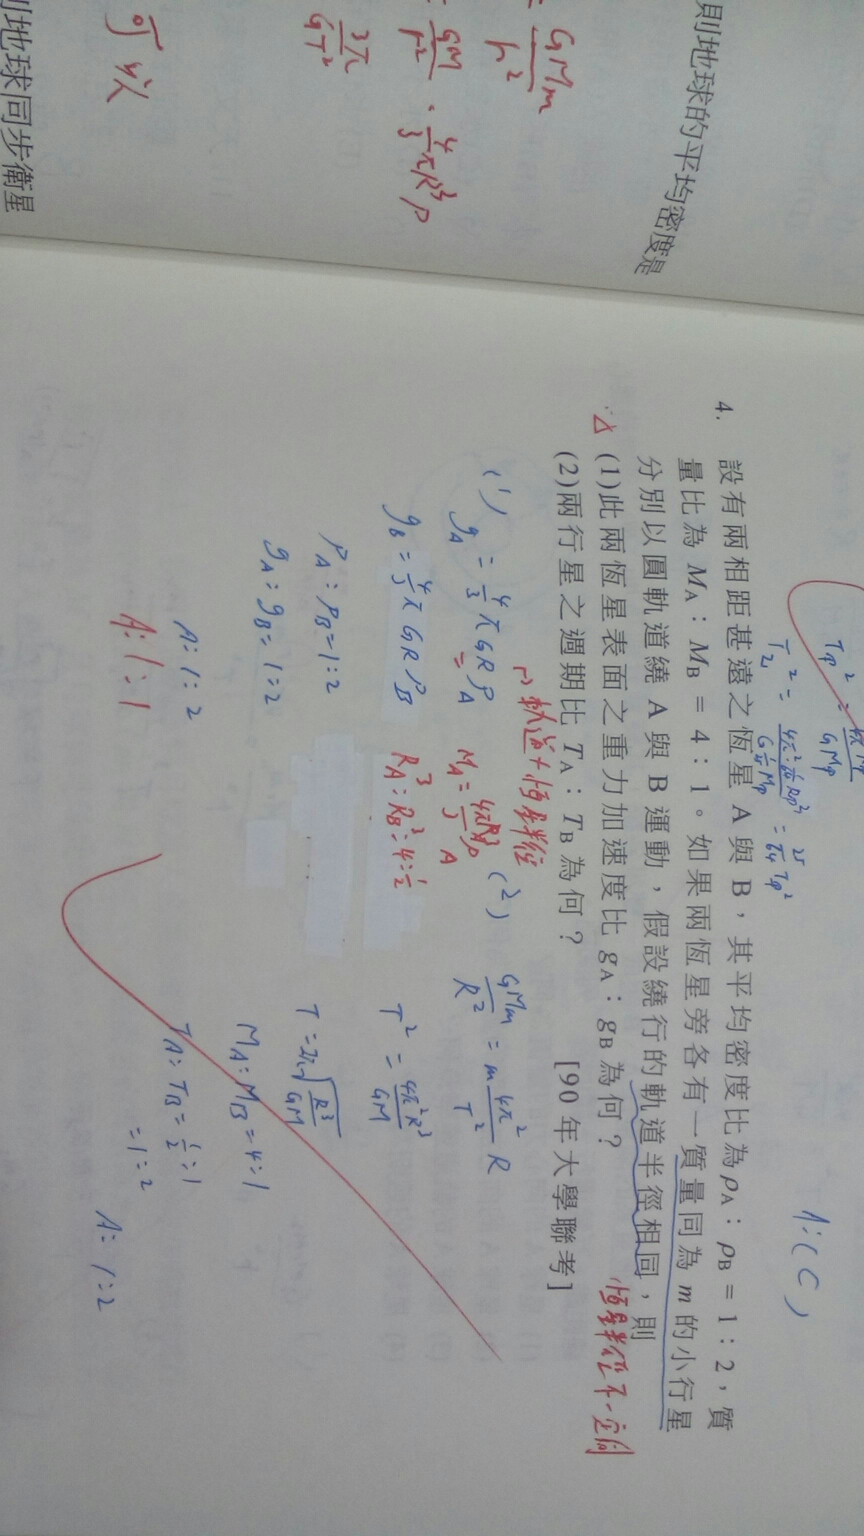 則地球的平均密度是
= GMm/r²
= GM/r² · 4/3 πR³ρ
3π/GT²
可以
則地球同步衛星
T₂² = = 25/64 Tφ²
A:(C)
4. 設有兩相距甚遠之恆星 A 與 B,其平均密度比為 ρA:ρB = 1:2,質
量比為 MA:MB = 4:1。如果兩恆星旁各有一質量同為 m 的小行星
分別以圓軌道繞 A 與 B 運動,假設繞行的軌道半徑相同,則
恆星半徑不一定同
(1)此兩恆星表面之重力加速度比 gA:gB 為何?
(2)兩行星之週期比 TA:TB 為何? [90 年大學聯考]
軌道≠恆星半徑
(1) gA = 4/3 πGRρA
gB = 4/3 πGRρB
ρA:ρB=1:2
gA:gB=1:2
A:1:2
A:1:1
MA = 4πR³/3 ρA
RA³:RB³=4:1/2
(2) GMm/R² = m 4π²/T² R
T² = 4π²R³/GM
T=2π√(R³/GM)
MA:MB=4:1
TA:TB=1/2:1
=1:2
A:1:2